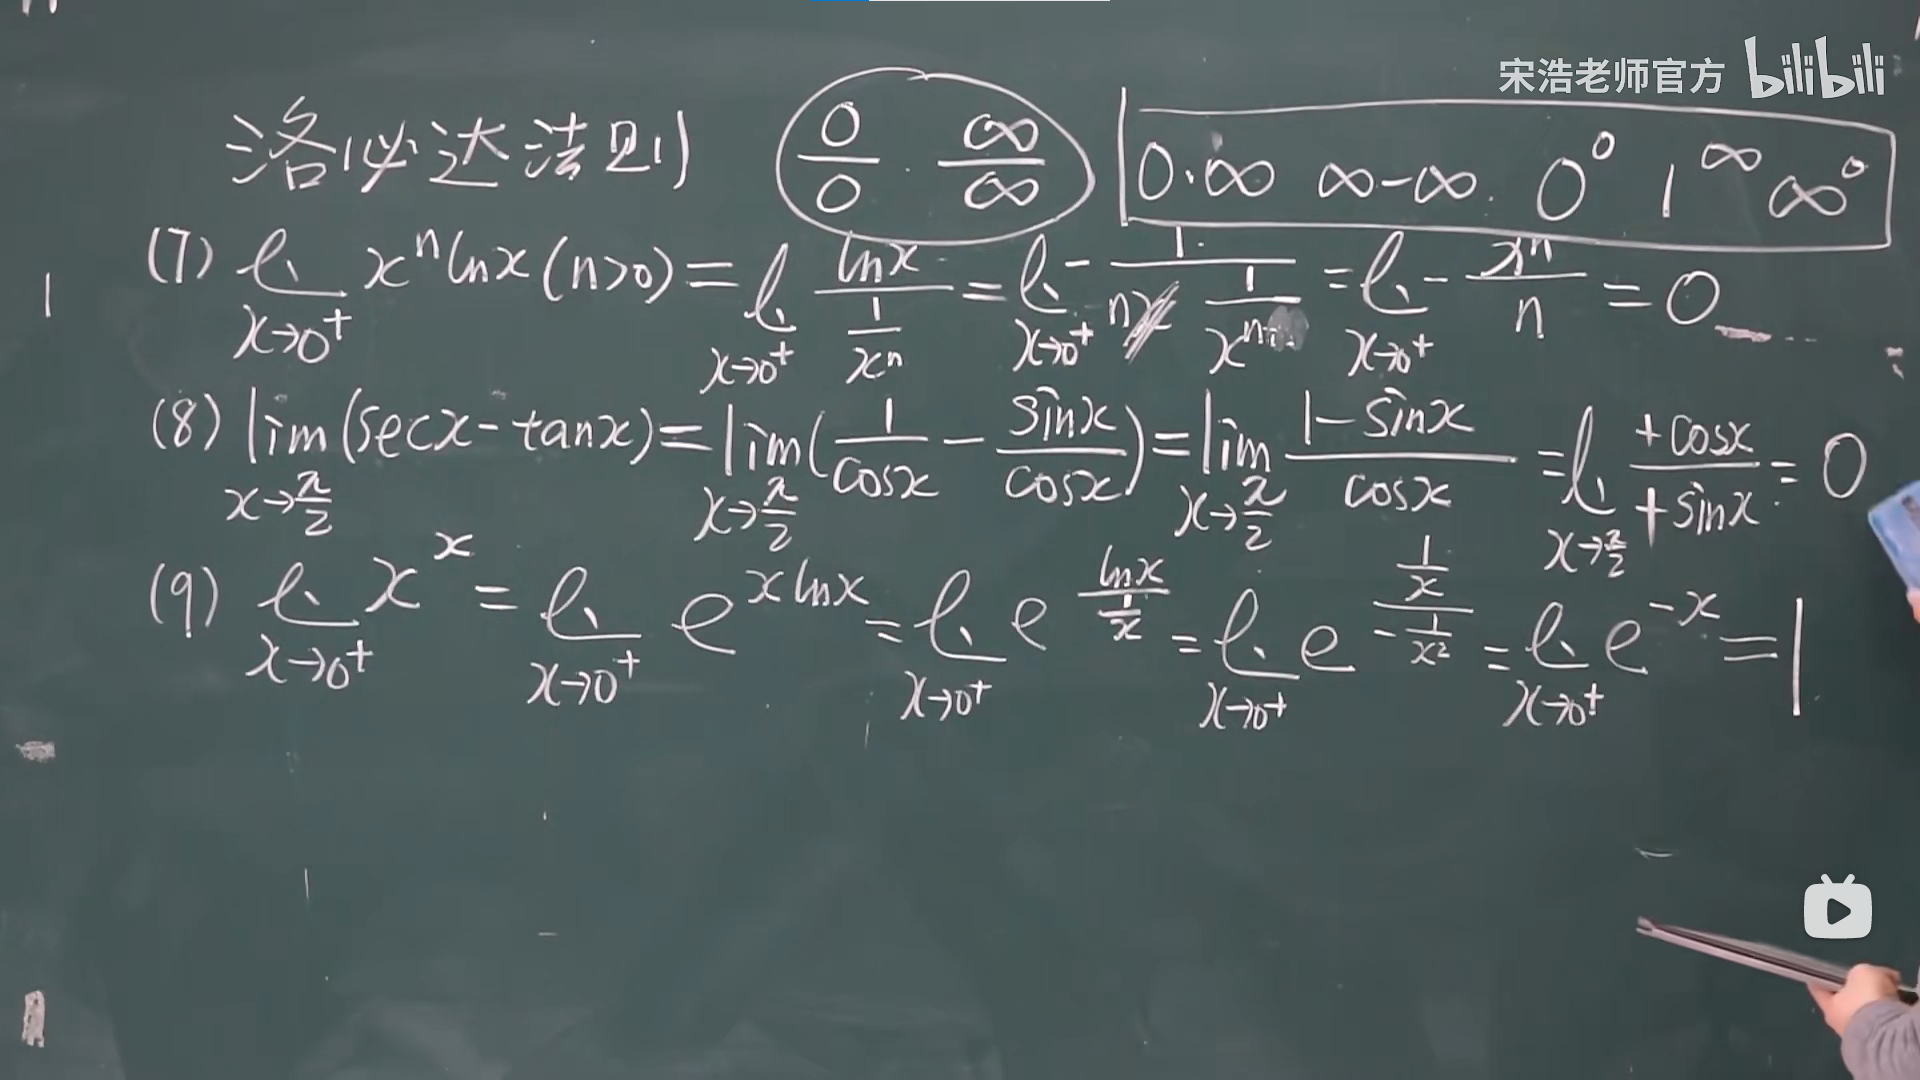 宋浩老师官方 bilibili
洛必达法则 0/0 ∞/∞ 0·∞ ∞-∞ 0^0 1^∞ ∞^0
(7) lim_{x→0^+} x^n lnx (n>0) = lim_{x→0^+} lnx/(1/x^n) = lim_{x→0^+} - 1/(n 1/x^n) = lim_{x→0^+} - x^n/n = 0
(8) lim_{x→π/2} (secx-tanx) = lim_{x→π/2} (1/cosx - sinx/cosx) = lim_{x→π/2} (1-sinx)/cosx = lim_{x→π/2} +cosx/+sinx = 0
(9) lim_{x→0^+} x^x = lim_{x→0^+} e^{xlnx} = lim_{x→0^+} e^{lnx/(1/x)} = lim_{x→0^+} e^{(1/x)/(-1/x^2)} = lim_{x→0^+} e^{-x} = 1